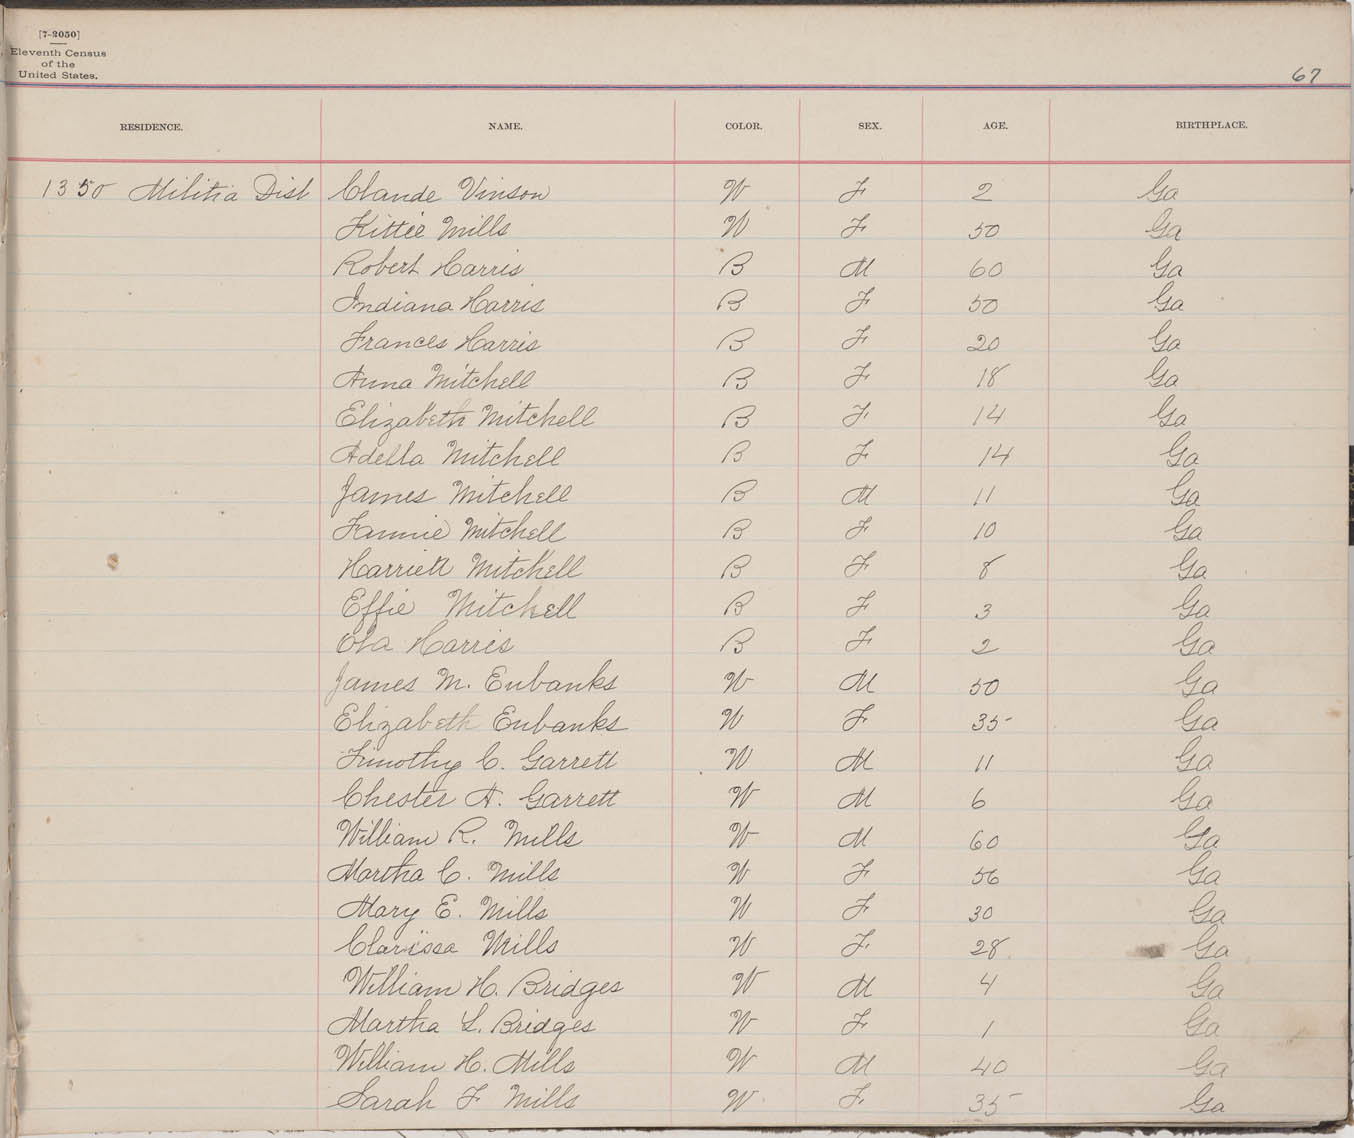 [7-2050]
Eleventh Census
of the
United States.
67
RESIDENCE. NAME. COLOR. SEX. AGE. BIRTHPLACE.
1350 Militia Dist Claude Vinson W F 2 Ga
Kittie Mills W F 50 Ga
Robert Harris B M 60 Ga
Indiana Harris B F 50 Ga
Frances Harris B F 20 Ga
Anna Mitchell B F 18 Ga
Elizabeth Mitchell B F 14 Ga
Adella Mitchell B F 14 Ga
James Mitchell B M 11 Ga
Fannie Mitchell B F 10 Ga
Harriett Mitchell B F 8 Ga
Effie Mitchell B F 3 Ga
Ola Harris B F 2 Ga
James M. Eubanks W M 50 Ga
Elizabeth Eubanks W F 35 Ga
Timothy C. Garrett W M 11 Ga
Chester A. Garrett W M 6 Ga
William R. Mills W M 60 Ga
Martha C. Mills W F 56 Ga
Mary E. Mills W F 30 Ga
Clarissa Mills W F 28 Ga
William H. Bridges W M 4 Ga
Martha L. Bridges W F 1 Ga
William H. Mills W M 40 Ga
Sarah F Mills W F 35 Ga